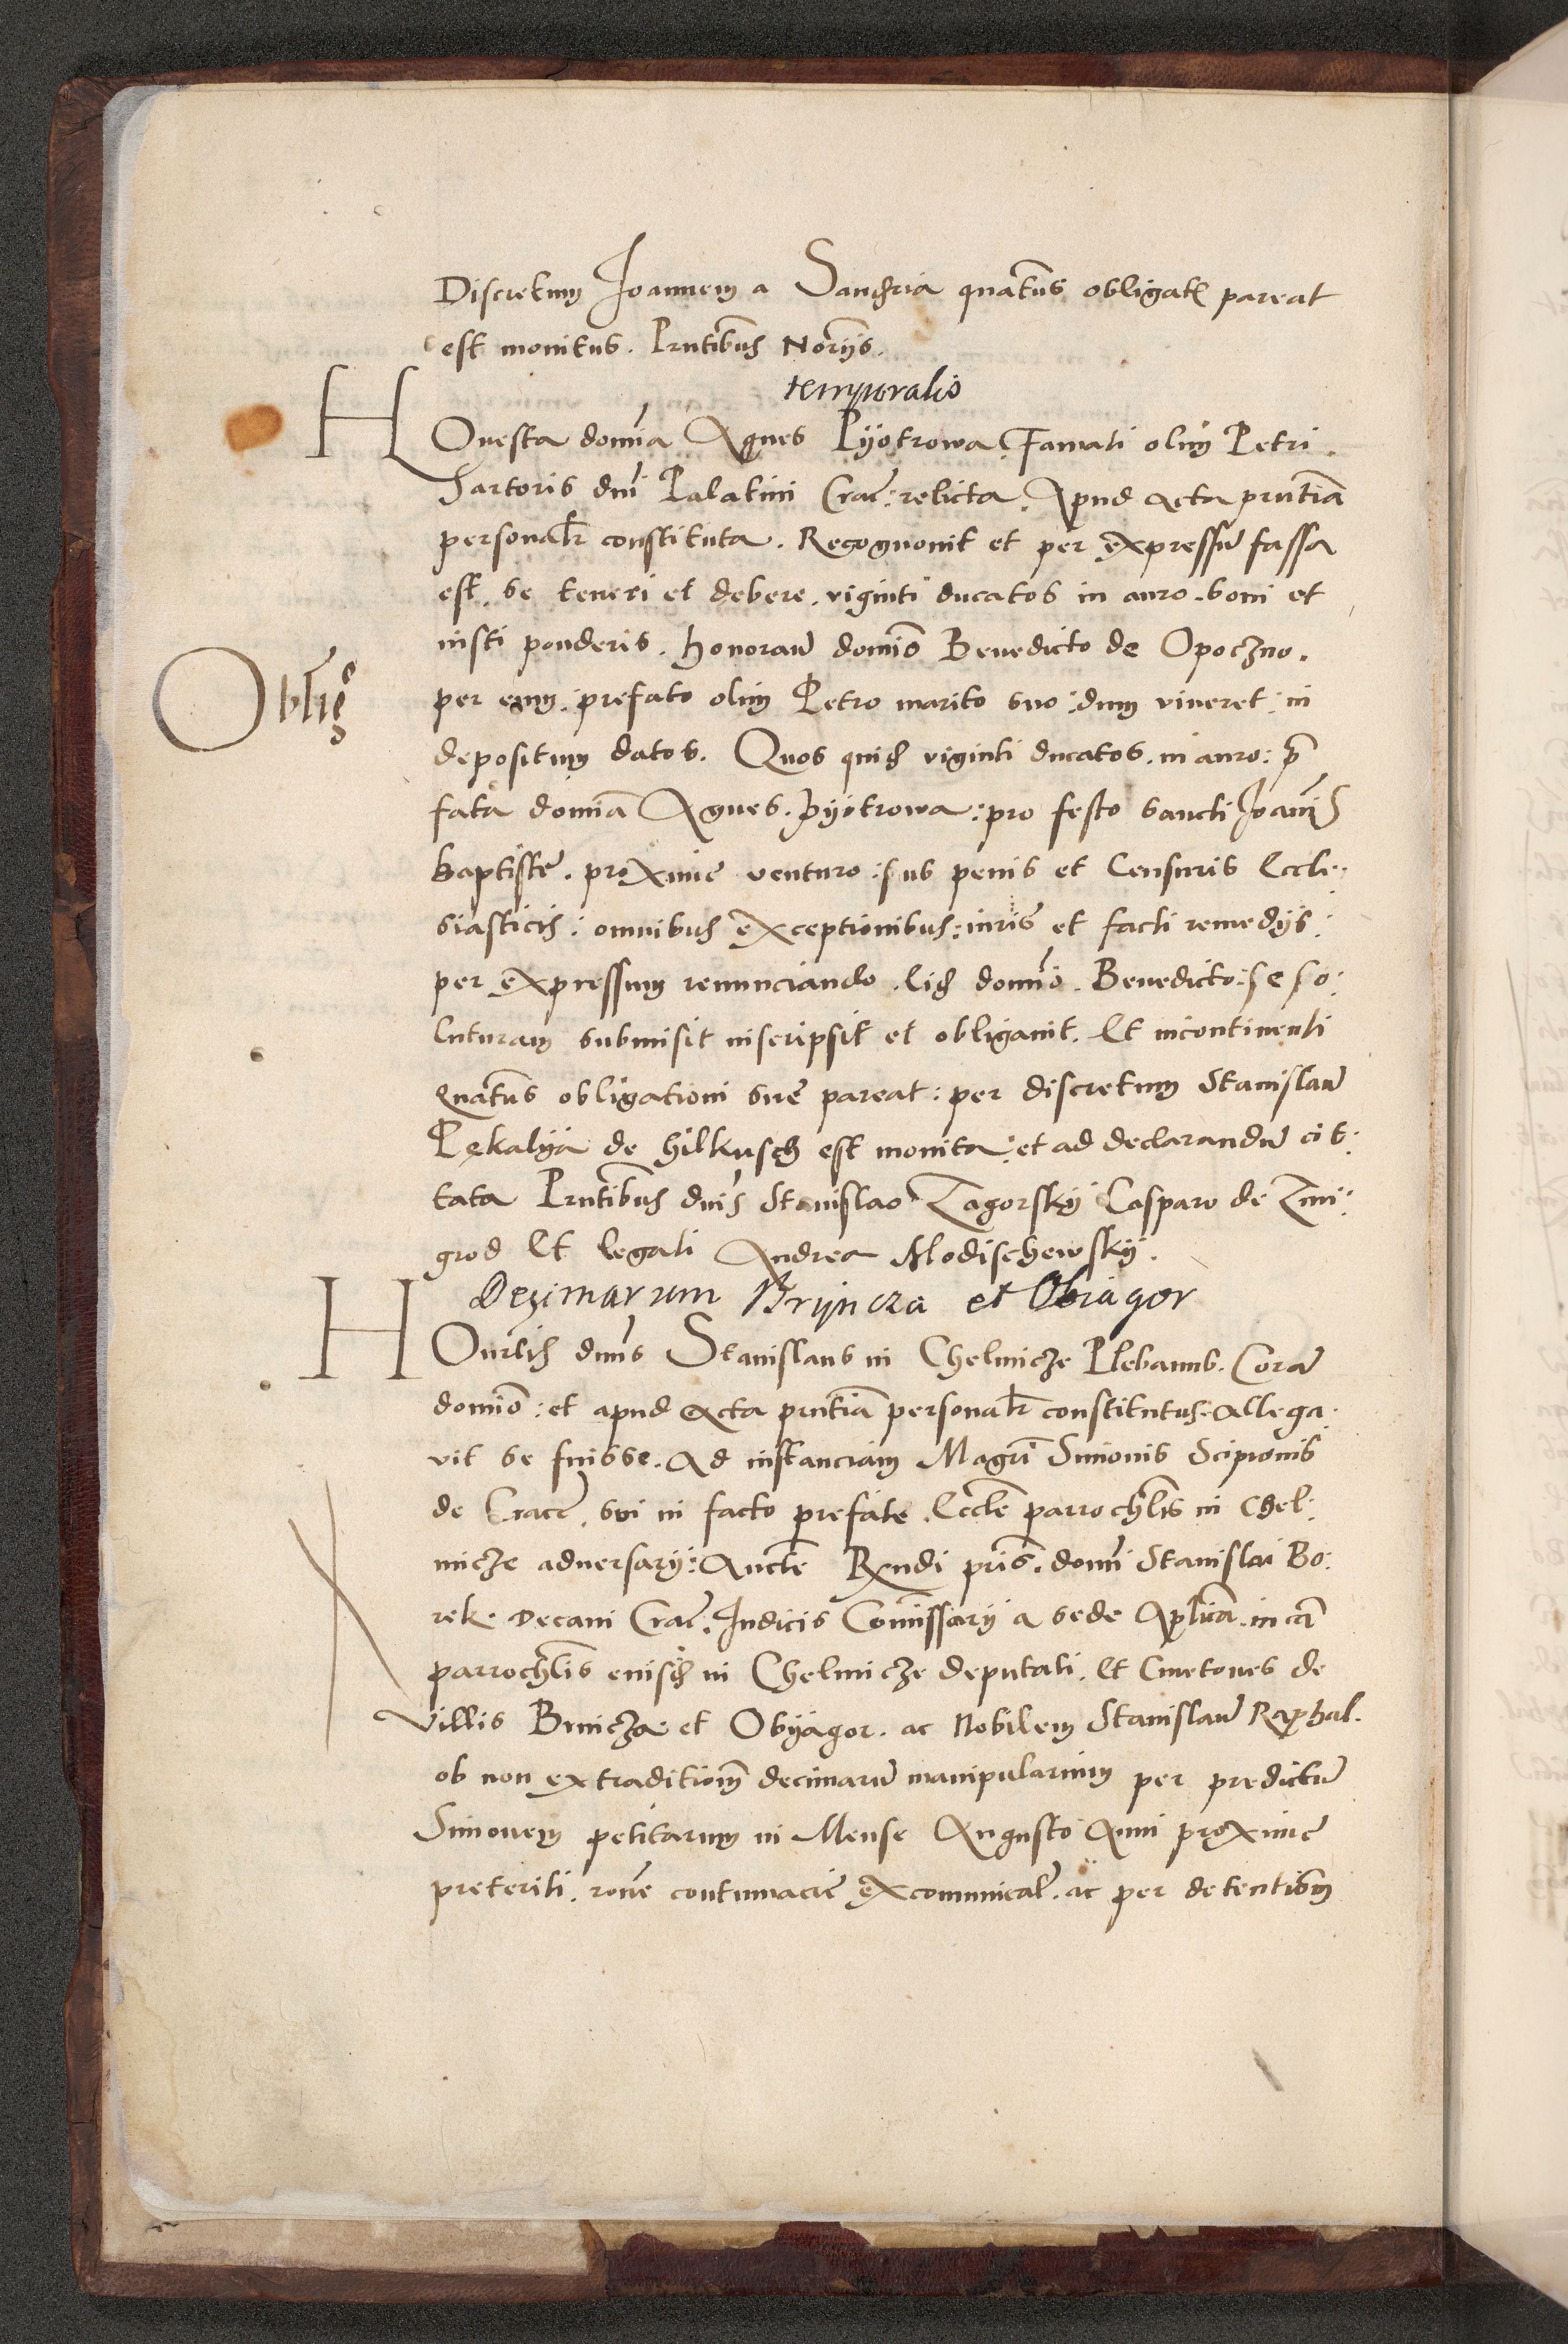 Discretum Joannem a Sanchria quatenus obligat pareat
est monitus. Prntibus Norijs.
temporalis
Honesta domina Agnes Pyotrowa, Famati olim Petri
Sartoris dni Palatini Crac: relicta. Apud acta pruntia
personalr constituta. Recognovit et per expressum fassa
est. se teneri et debere. viginti ducatos in auro. boni et
iusti ponderis. honoran domino Benedicto de Opoczno.
Obligo
per eum. prefato olim Petro marito suo: dum viveret: in
depositum datos. Quos quidem viginti ducatos. in auro: pre
fata domina Agnes. pyotrowa: pro festo sancti Joannis
baptiste. proxime venturo: sub penis et Censuris Eccle:
siasticis: omnibus exceptionibus: iuris et facti remedijs:
per expressum renunciando. eidem domino. Benedicto: se so:
luturam submisit inscripsit et obligavit. Et incontinenti
quatenus obligationi sue pareat: per discretum Stanislaum
Pękalya de hilkusch est monita: et ad declarandum cit:
tata Prntibus dnis Stanislao Zagorsky Casparo de Zmi:
grod Et legali Andrea Modischewsky.
Dezimarum Brijncza et Obiagor
Honrlis dnus Stanislaus in Chelmicze Plebanus. Coram
domino: et apud acta pruntia personalr constitutus. allega:
vit se fuisse. ad instanciam Magri Simonis Scipionis
de Crac. sui in facto prefate. Eccle parrochlis in Chel:
micze adversarij: Aucte Rndi pris. domini Stanislai Bo:
rek. Decani Crac. Judicis Comissarij a sede Aplica. in ca
parrochlis eiusdem in Chelmicze deputati. Et Cmetones de
villis Brnicza et Obyagor. ac Nobilem Stanislaum Raphal.
ob non extraditionem decimarum manipularium per predictum
Simonem petitarum in Mense Augusto Anni proxime
preteriti. rone contumacie excomunicatr. ac per detentionem